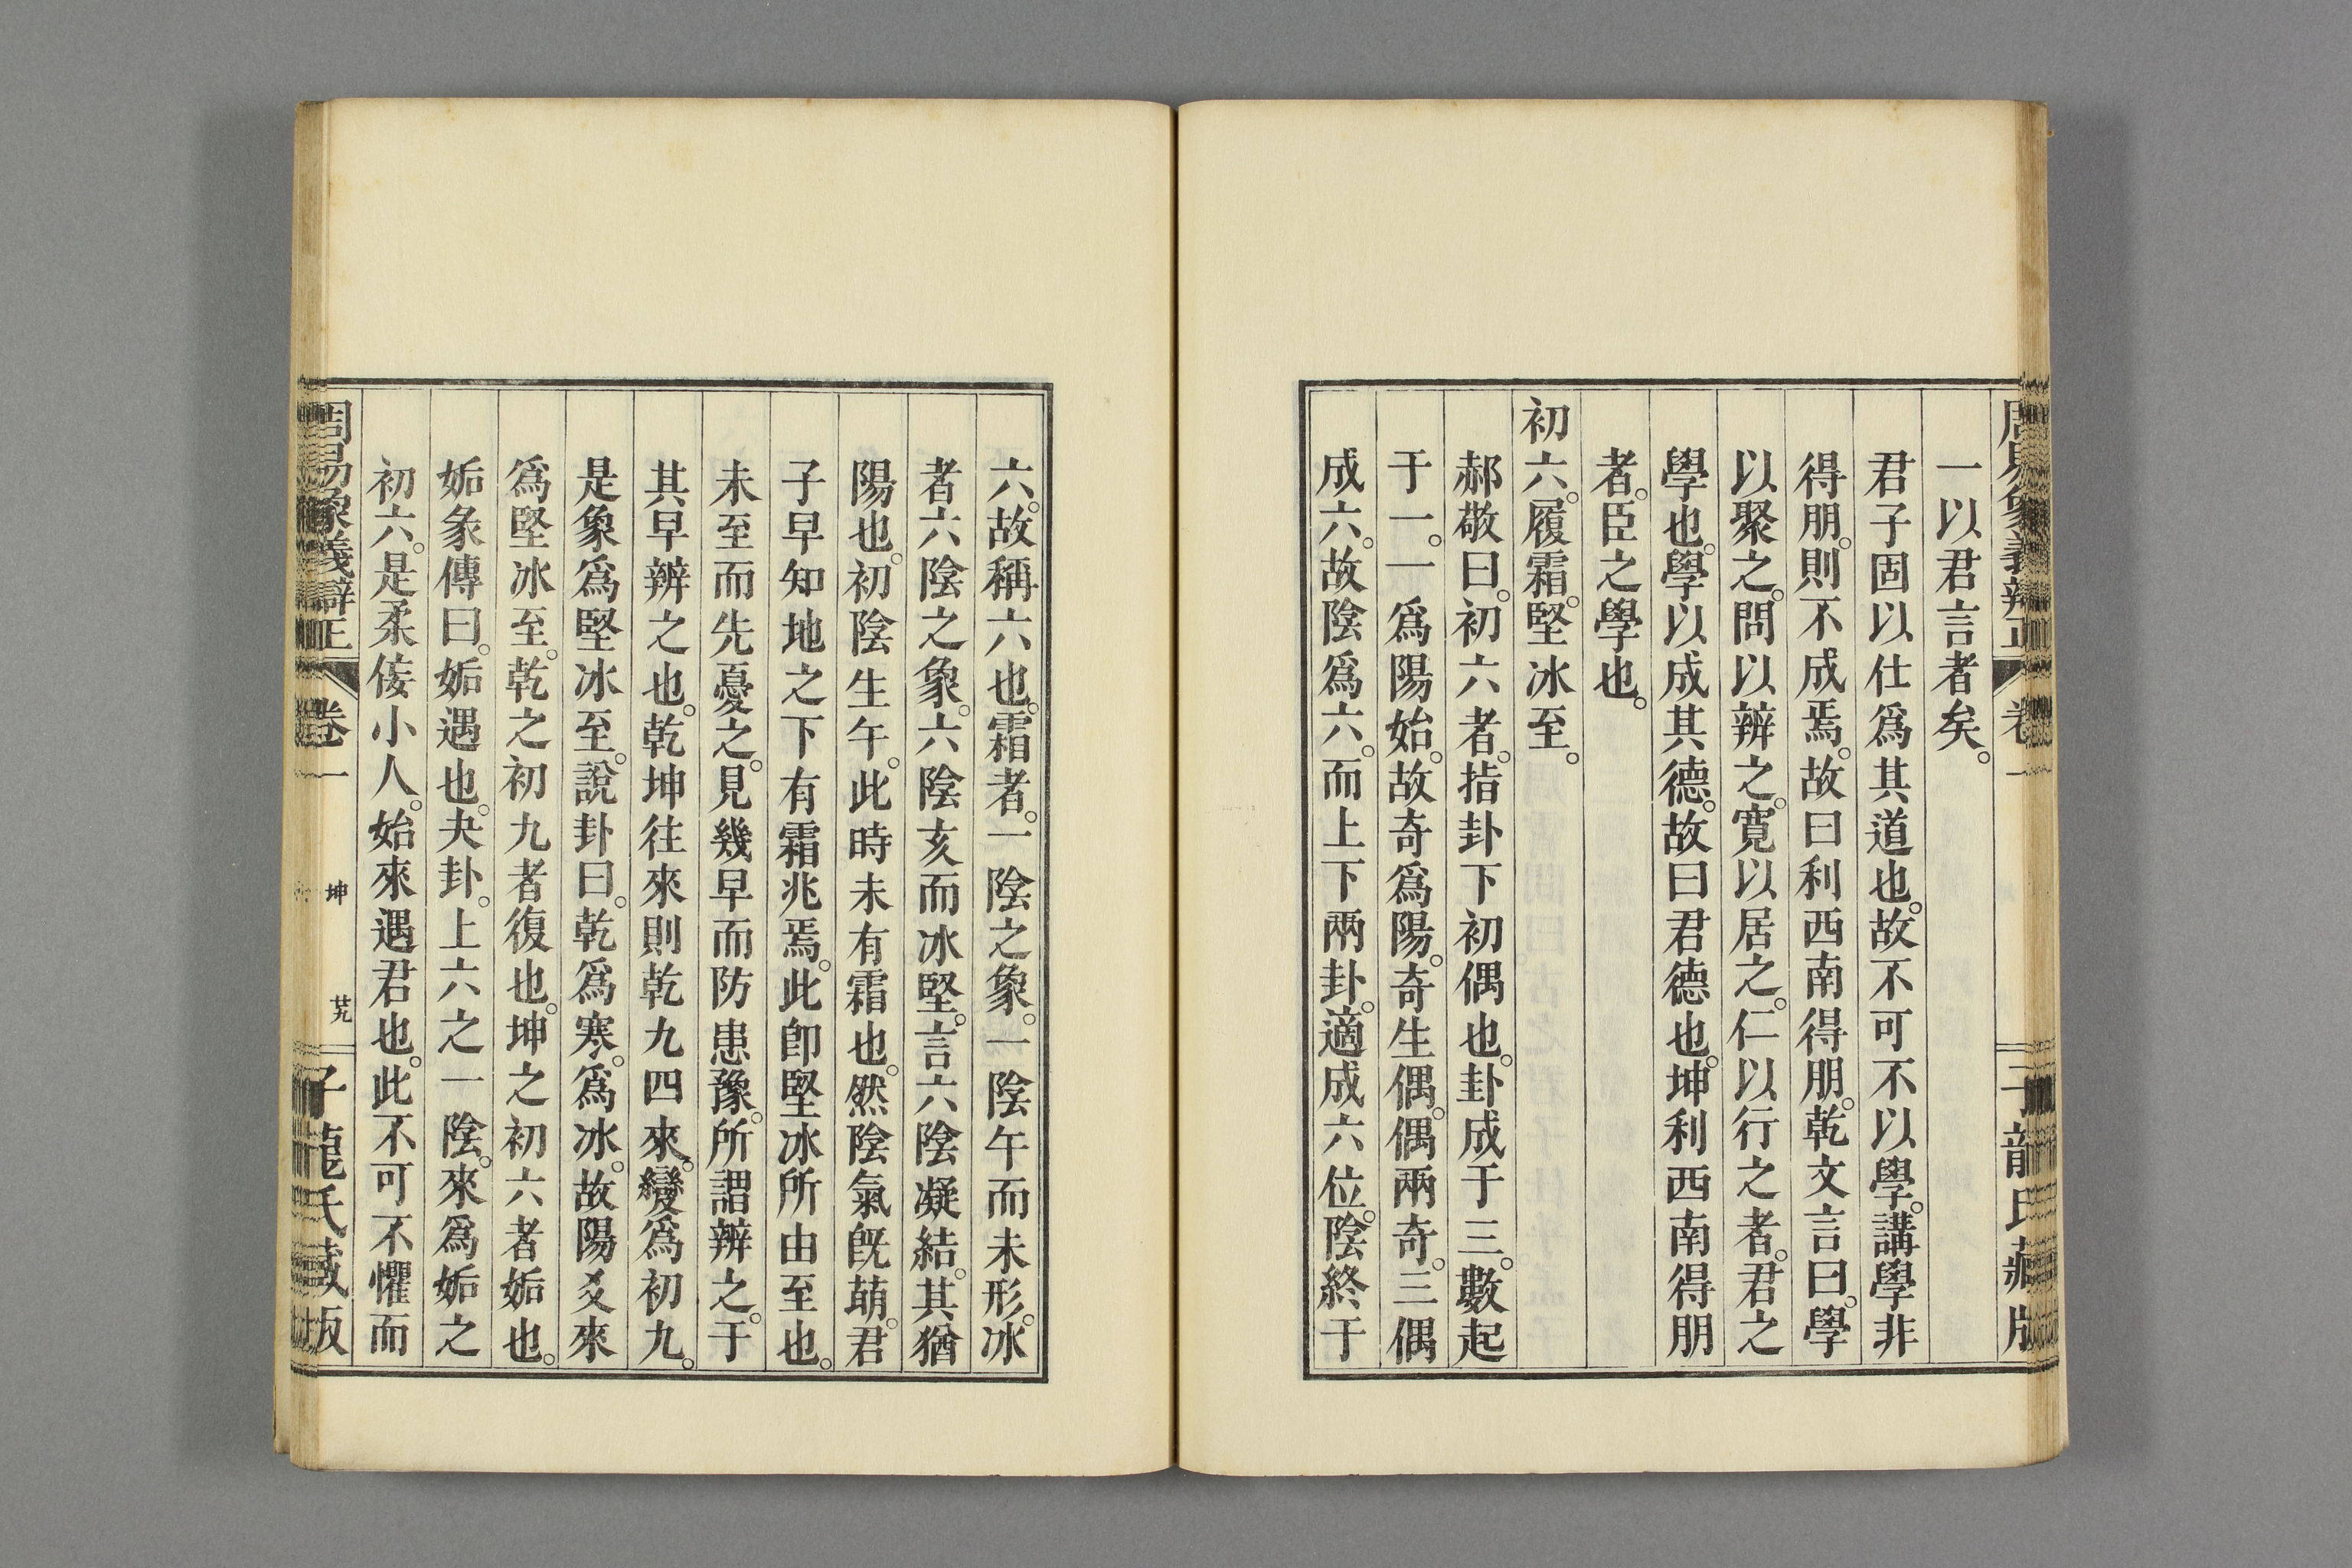 周易象義辯正 卷一 子龍氏藏版
一以君言者矣。
君子固以仕爲其道也。故不可不以學。講學非
得朋。則不成焉。故曰利西南得朋。乾文言曰。學
以聚之。問以辨之。寬以居之。仁以行之者。君之
學也。學以成其德。故曰君德也。坤利西南得朋
者。臣之學也。
初六。履霜。堅冰至。
郝敬曰。初六者。指卦下初偶也。卦成于三。數起
于一。一爲陽始。故奇爲陽。奇生偶。偶兩奇。三偶
成六。故陰爲六。而上下兩卦。適成六位。陰終于
六。故稱六也。霜者。一陰之象。一陰午而未形。冰
者六陰之象。六陰亥而冰堅。言六陰凝結。其猶
陽也。初陰生午。此時未有霜也。然陰氣旣萌。君
子早知地之下有霜兆焉。此卽堅冰所由至也。
未至而先憂之。見幾早而防患豫。所謂辨之。于
其早辨之也。乾坤往來則乾九四來。變爲初九。
是象爲堅冰至。說卦曰。乾爲寒。爲冰。故陽爻來
爲堅冰至。乾之初九者復也。坤之初六者姤也。
姤彖傳曰。姤遇也。夬卦。上六之一陰。來爲姤之
初六。是柔倿小人。始來遇君也。此不可不懼而
周易象義辯正 卷一 坤 廿九 子龍氏藏版